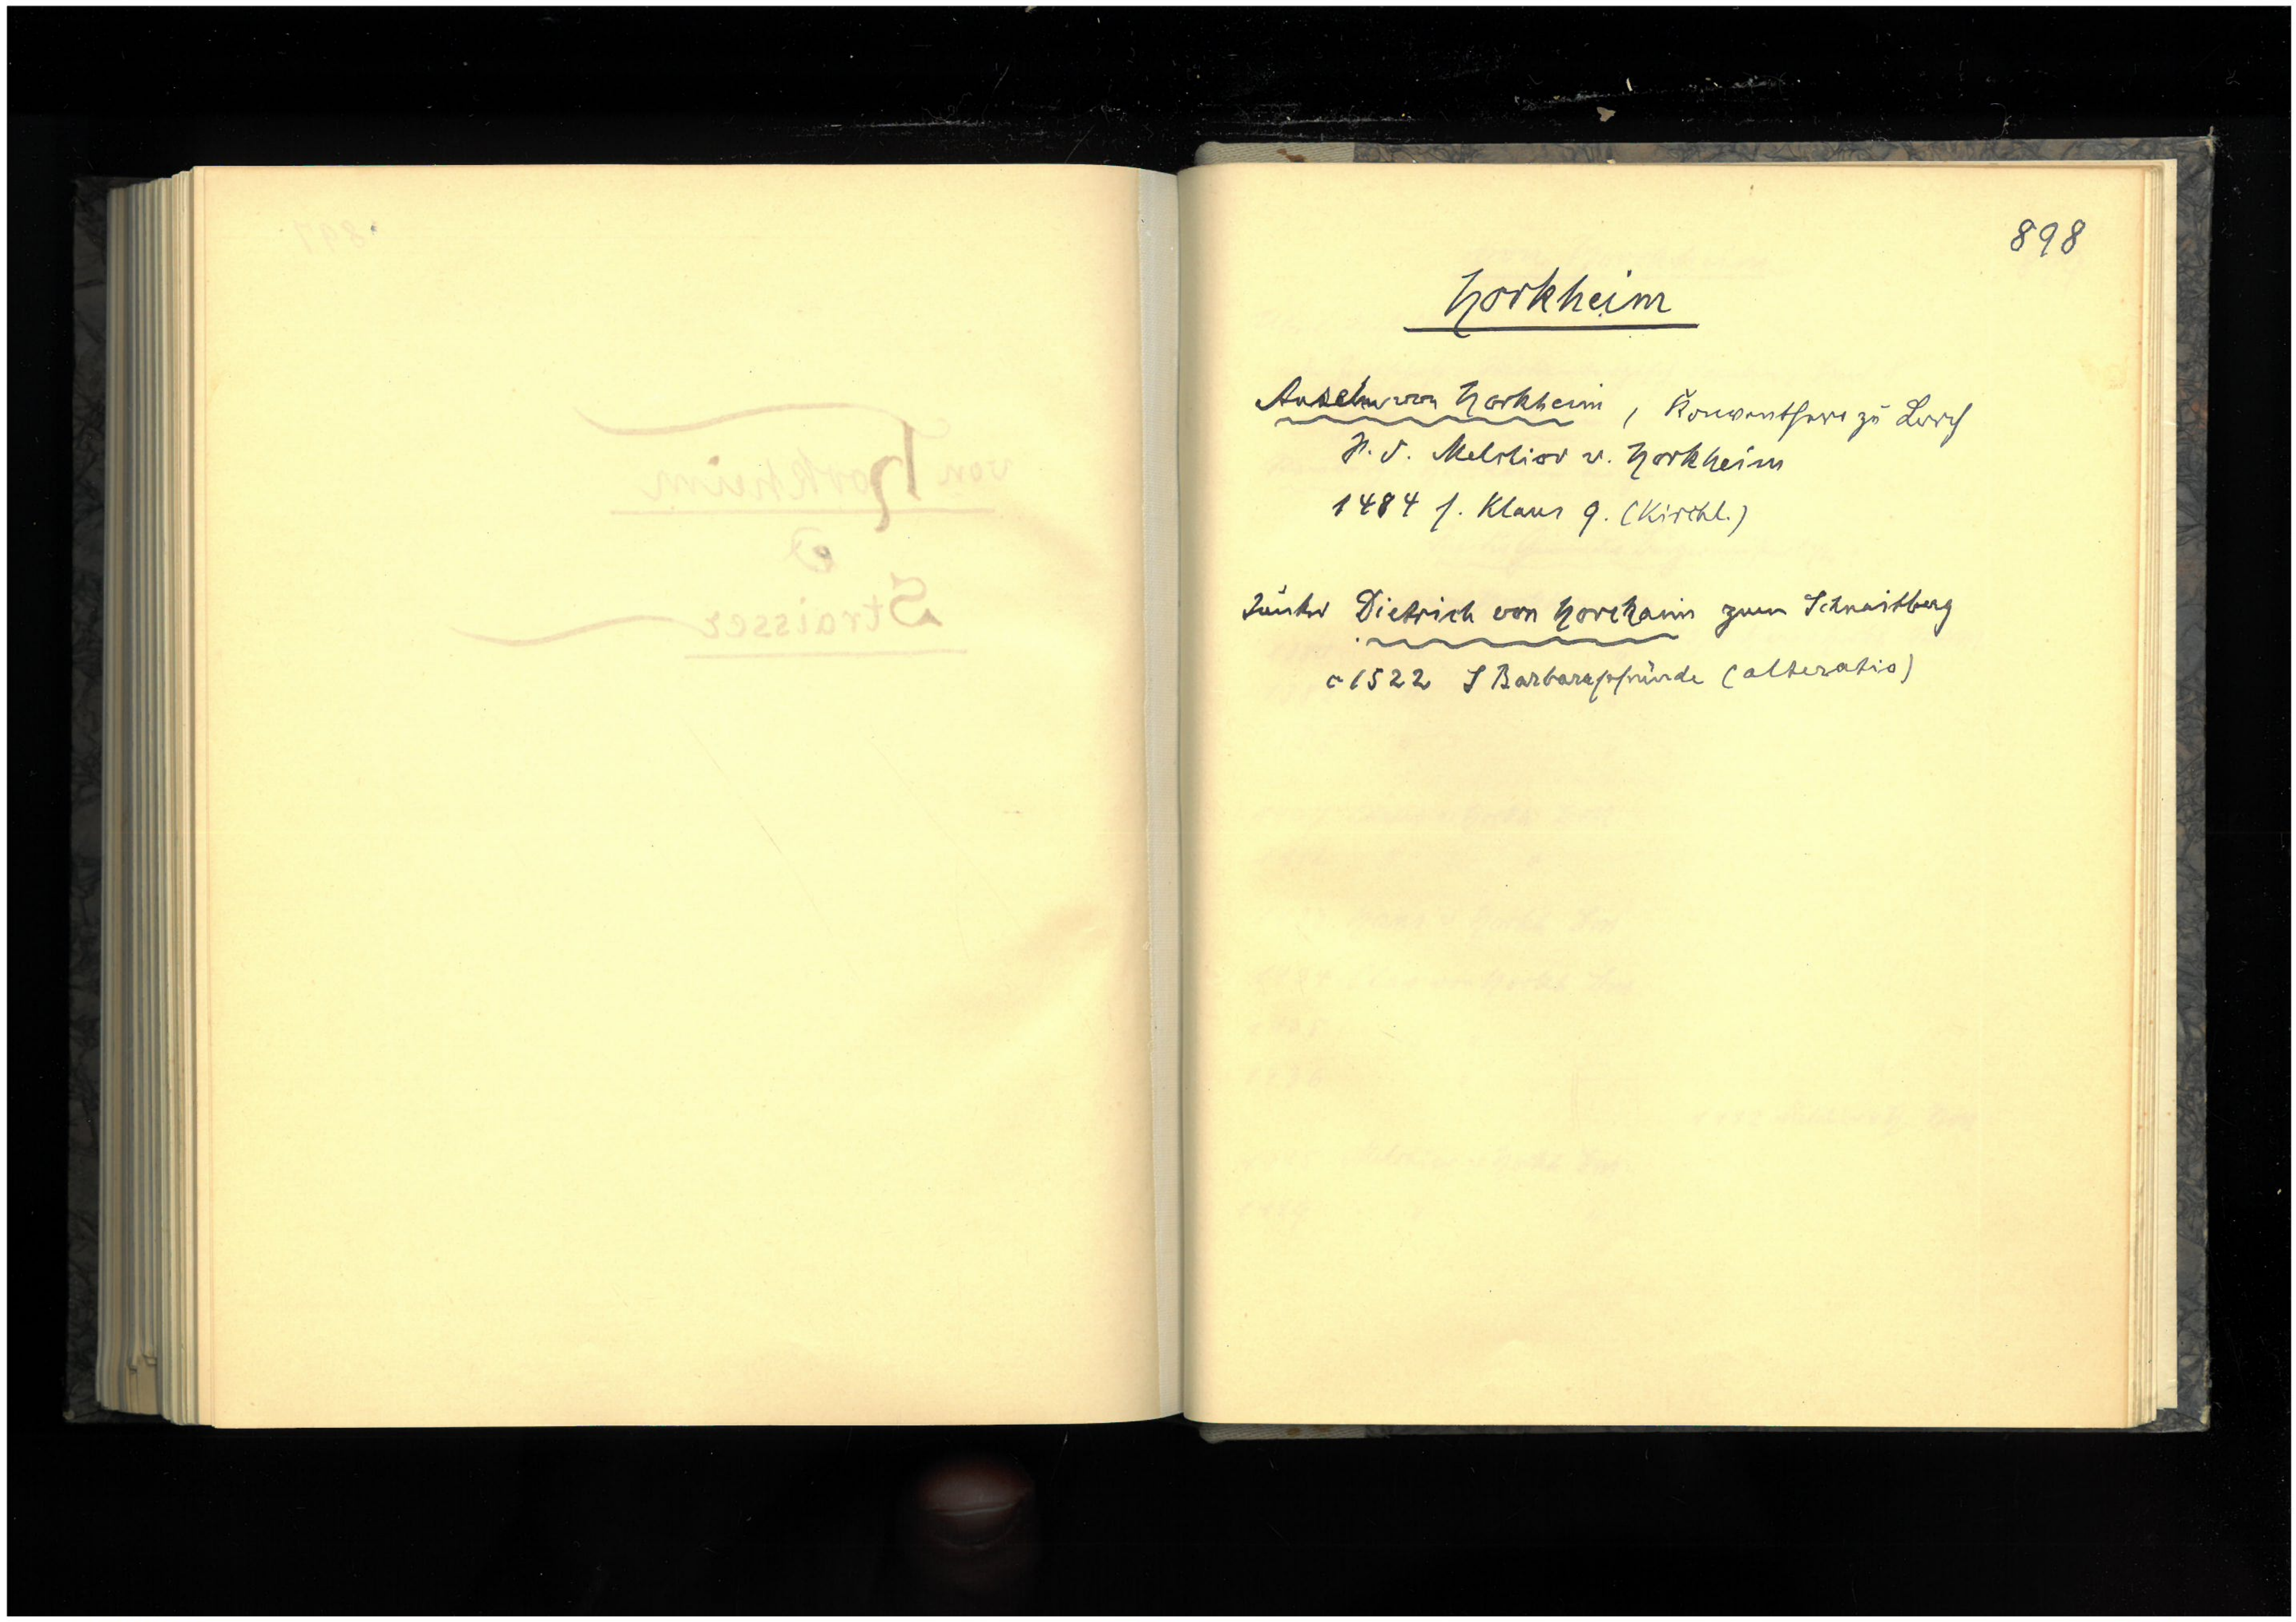 898
Horkheim
Anselm von Horkheim, Konventherr zu Lorch
H. d. Melchior v. Horkheim
1484 f. Klaus 9. (Kirchl.)
Junker Dietrich von Horchaim zum Schnaitberg
c 1522 S Barbarapfründe (alteratio)